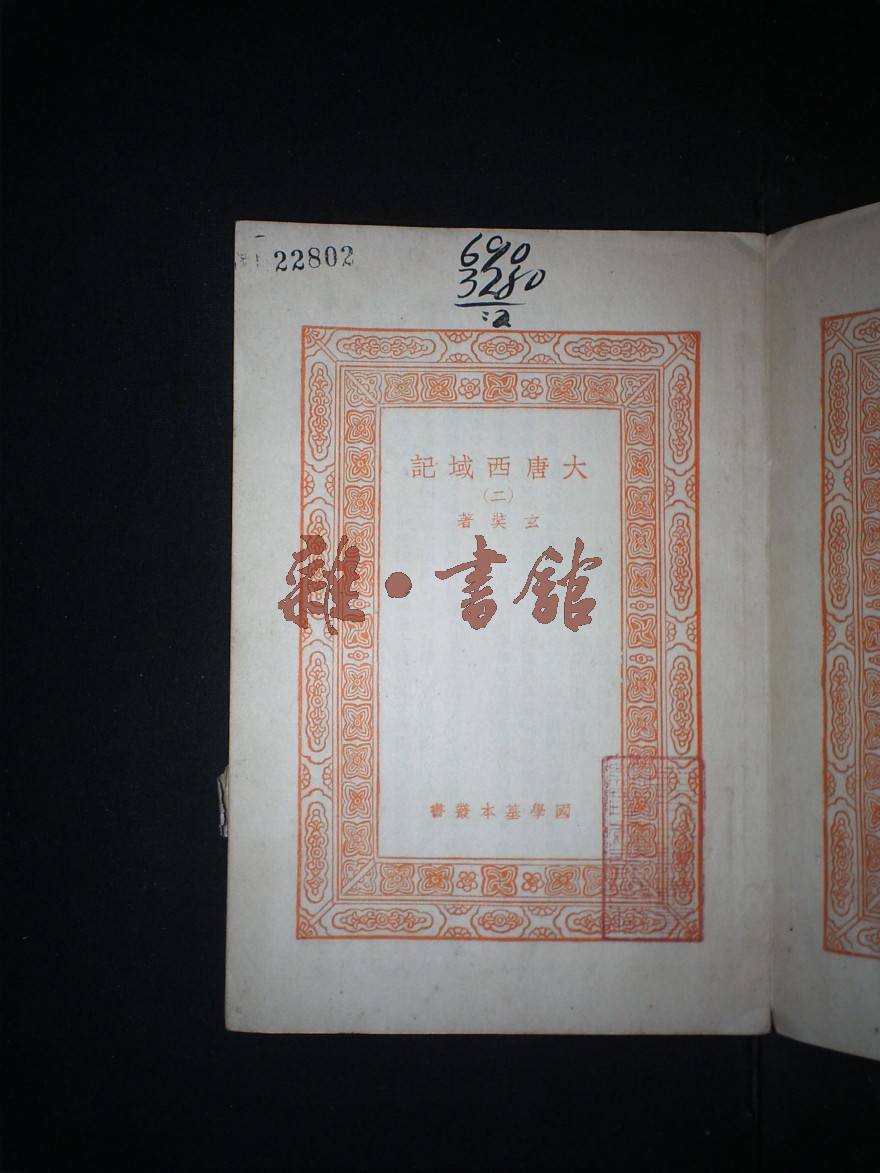 22802
690
3280
:2
大唐西域記
(二)
玄奘著
雜·書館
國學基本叢書